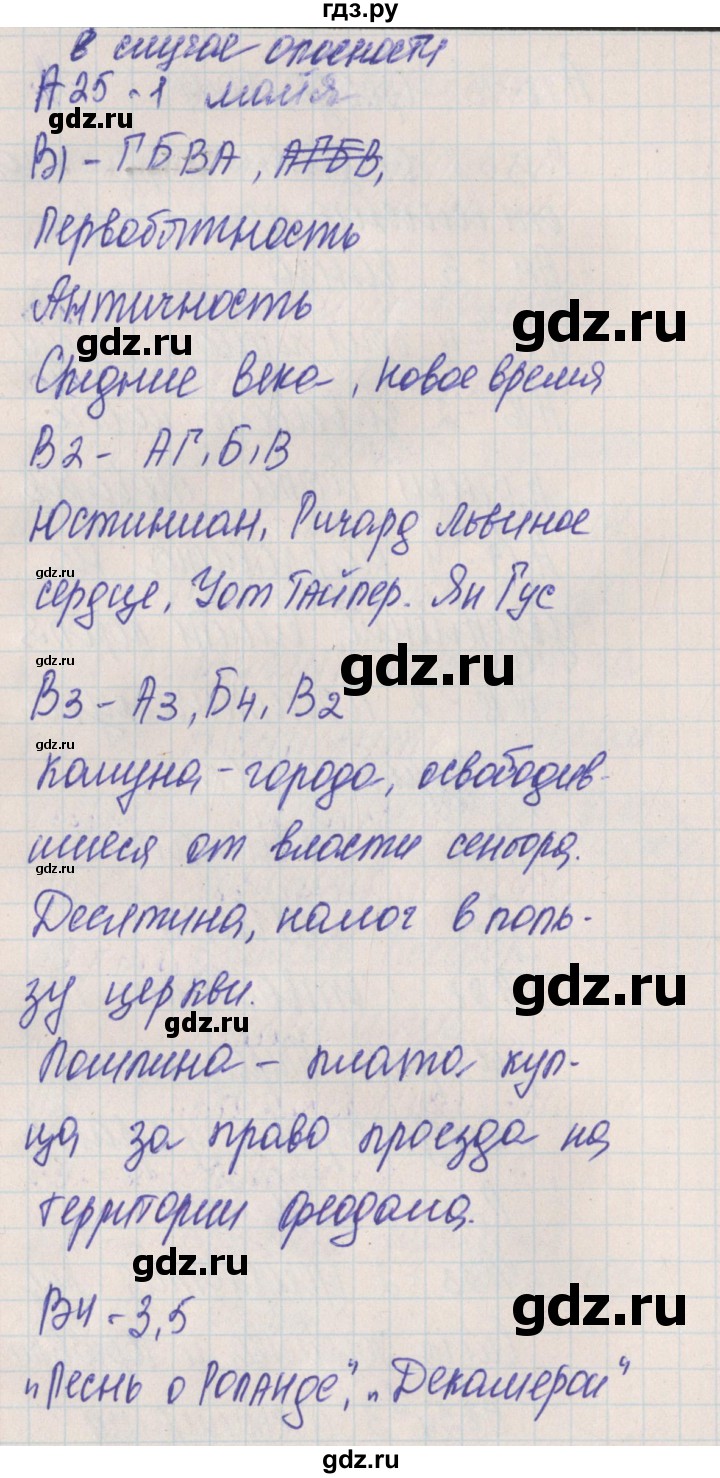 гдз.ру
в случае опасности
А25-1 майя
gdz.ru
В1 - ГБВА, АГБВ,
Первобытность
Античность
gdz.ru
gdz.ru
Средние века, новое время
В2 - АГ, Б, В
Юстиниан, Ричард Львиное
gdz.ru
сердце, Уот Тайлер. Ян Гус
gdz.ru
gdz.ru
В3 - А3, Б4, В2
gdz.ru
Комуна - города, освободив-
шиеся от власти сеньора.
gdz.ru
Десятина, налог в поль-
зу церкви.
gdz.ru
gdz.ru
Пошлина - плата куп-
ца за право проезда на
территории феодала.
gdz.ru
В4 - 3,5
gdz.ru
"Песнь о Роланде", "Декамерон"
gdz.ru